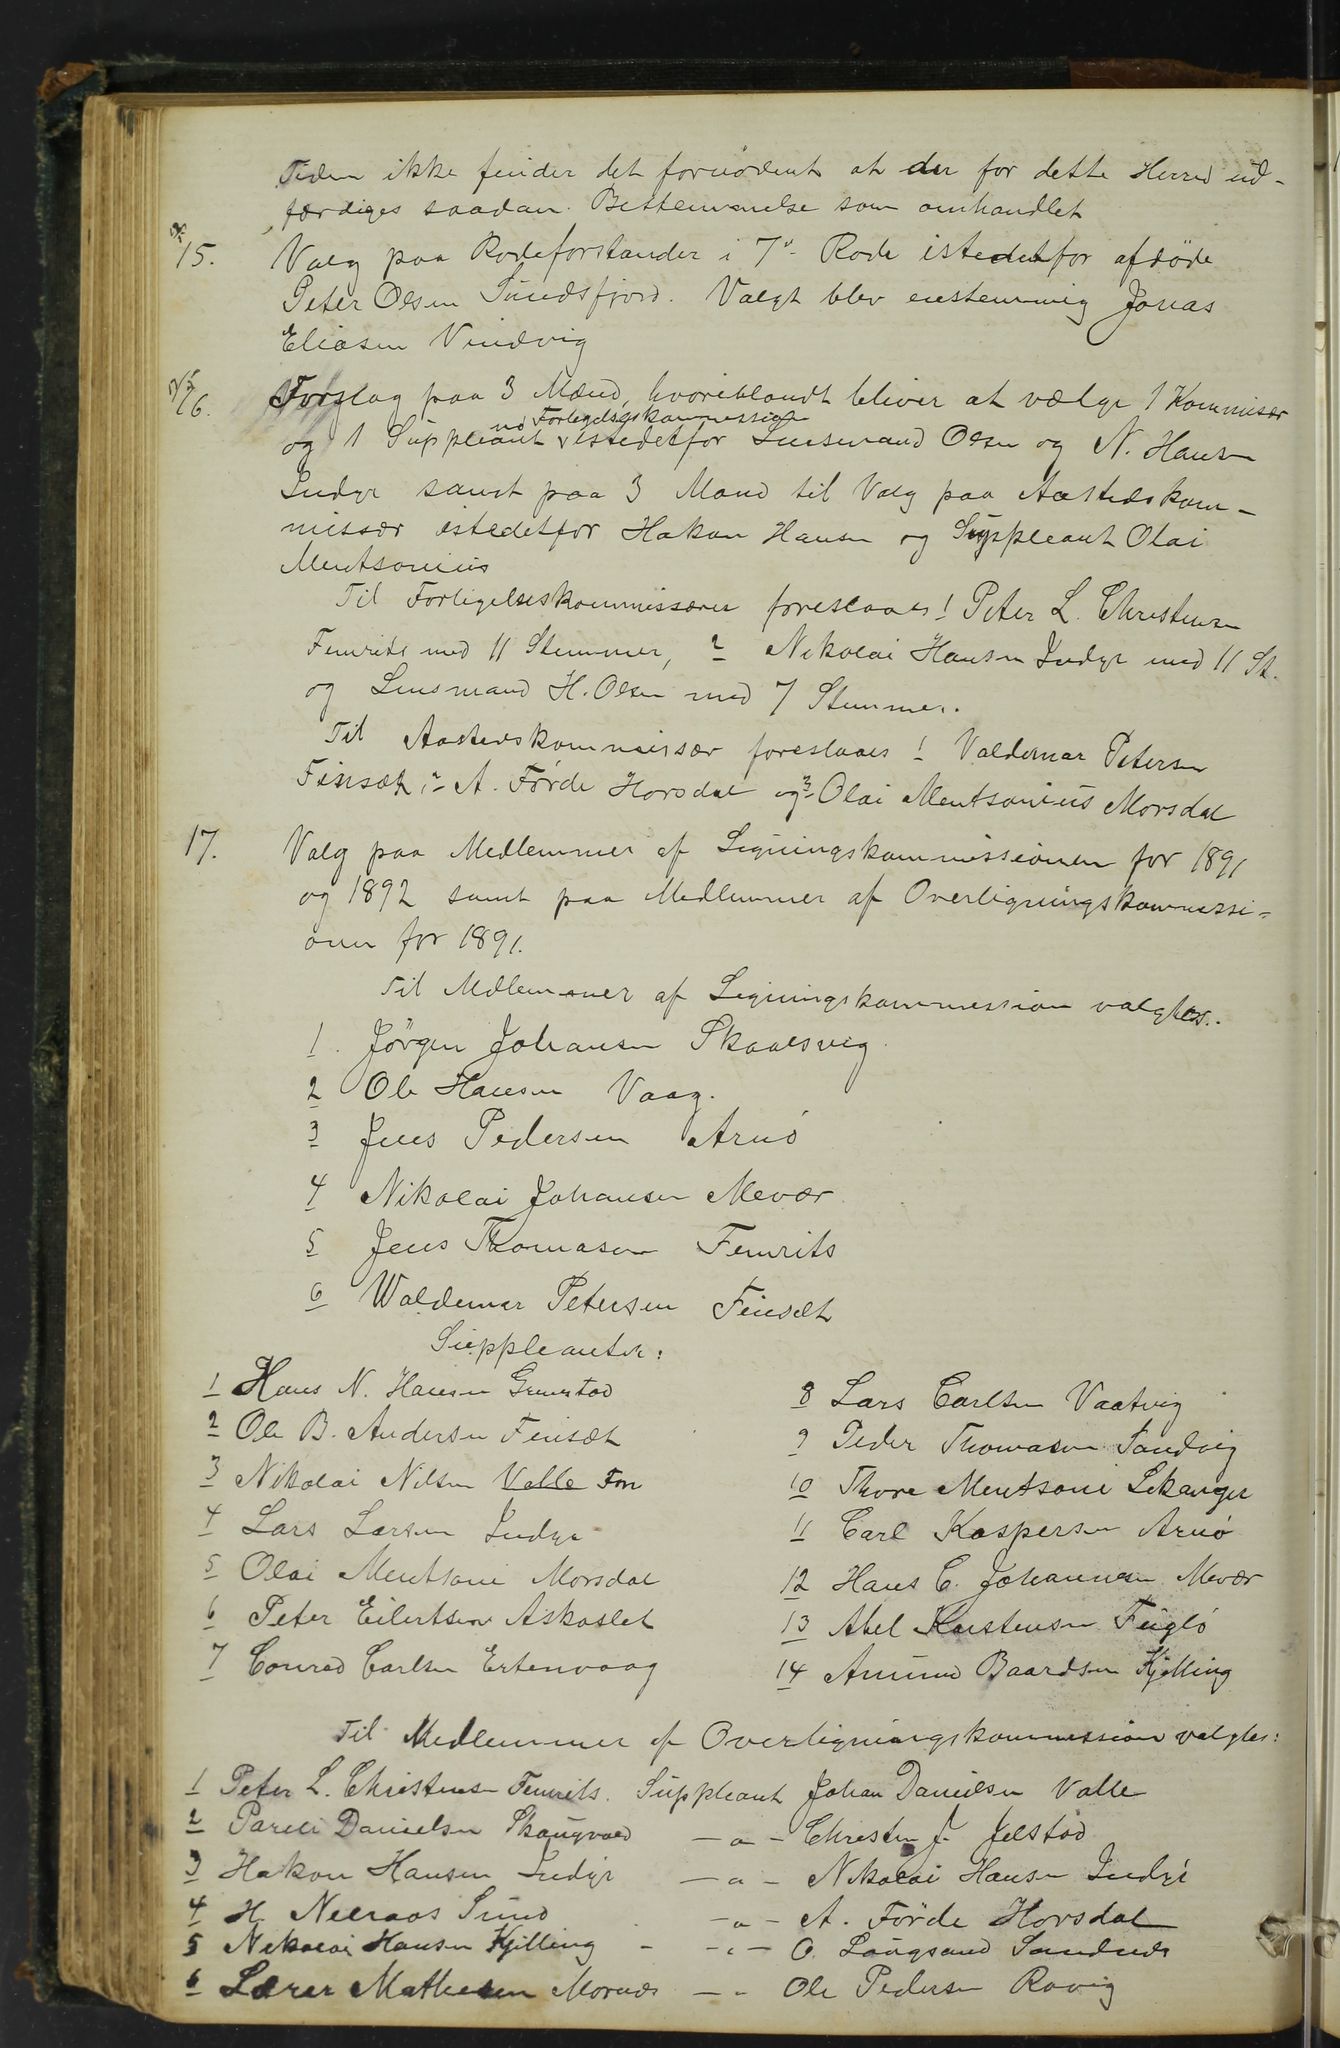 Tiden ikke finder det fornødent at der for dette Herred ud-
færdiges saadan Bestemmelse som omhandlet
15. Valg paa Rodeforstander i 7de Rode istedetfor afdöde
Peter Olsen Sundsfjord. Valgt blev enstemmig Jonas
Eliasen Vindvig
16. Forslag paa 3 Mænd, hvoriblandt bliver at vælge 1 Kommisær
ved Forligelseskommission
og 1 Suppleant istedetfor Lensmand Olsen og N. Hansen
Indyr samt paa 3 Mand til Valg paa Aastedskom-
missær istedetfor Hakon Hansen og Suppleant Olai
Mentsonius
Til Forligelseskommissærer foreslaaes 1 Peter L. Christensen
Femrids med 11 Stemmer, 2 Nikolai Hansen Indyr med 11 St.
og Lensmand H. Olsen med 7 Stemmer.
Til Aastedskommissær foreslaaes 1 Valdemar Petersen
Finsæt, 2 A. Förde Horsdal og 3 Olai Mentsonius Morsdal
17. Valg paa Medlemmer af Ligningskommissionen for 1891
og 1892 samt paa Medlemmer af Overligningskommissi-
onen for 1891.
Til Medlemmer af Ligningskommission valgtes.
1. Jörgen Johansen Skaalsvig
2 Ole Hansen Vaag.
3 Jens Pedersen Arnö
4 Nikolai Johansen Mevær
5 Jens Thomasen Femrits
6 Waldemar Petersen Finsæt
Suppleanter:
1 Hans N. Hansen Grimstad
2 Ole B. Andersen Finsæt
3 Nikolai Nilsen Valle Fore
4 Lars Larsen Indyr
5 Olai Mentsoni Morsdal
6 Peter Eilertsen Askaslet
7 Conrad Carlsen Ertenvaag
8 Lars Carlsen Vaatvig
9 Peder Thomasen Sandvig
10 Thore Mentsoni Lekanger
11 Carl Kaspersen Arnö
12 Hans C. Johannesen Mevær
13 Abel Karstensen Fuglö
14 Amund Baardsen Kjelling
Til Medlemmer af Overligningskommission valgtes:
1 Peter L. Christensen Femrits. Suppleant Johan Danielsen Valle
2 Pareli Danielsen Skaugvold — " — Christen J. Jelstad
3 Hakon Hansen Indyr — " — Nikolai Hansen Indyr
4 H. Nelraas Sund — " — A. Förde Horsdal
5 Nikolai Hansen Kjelling — " — O. Langsand Sandnæs
6 Lærer Mathesen Mornæs — " Ole Pedersen Ravig